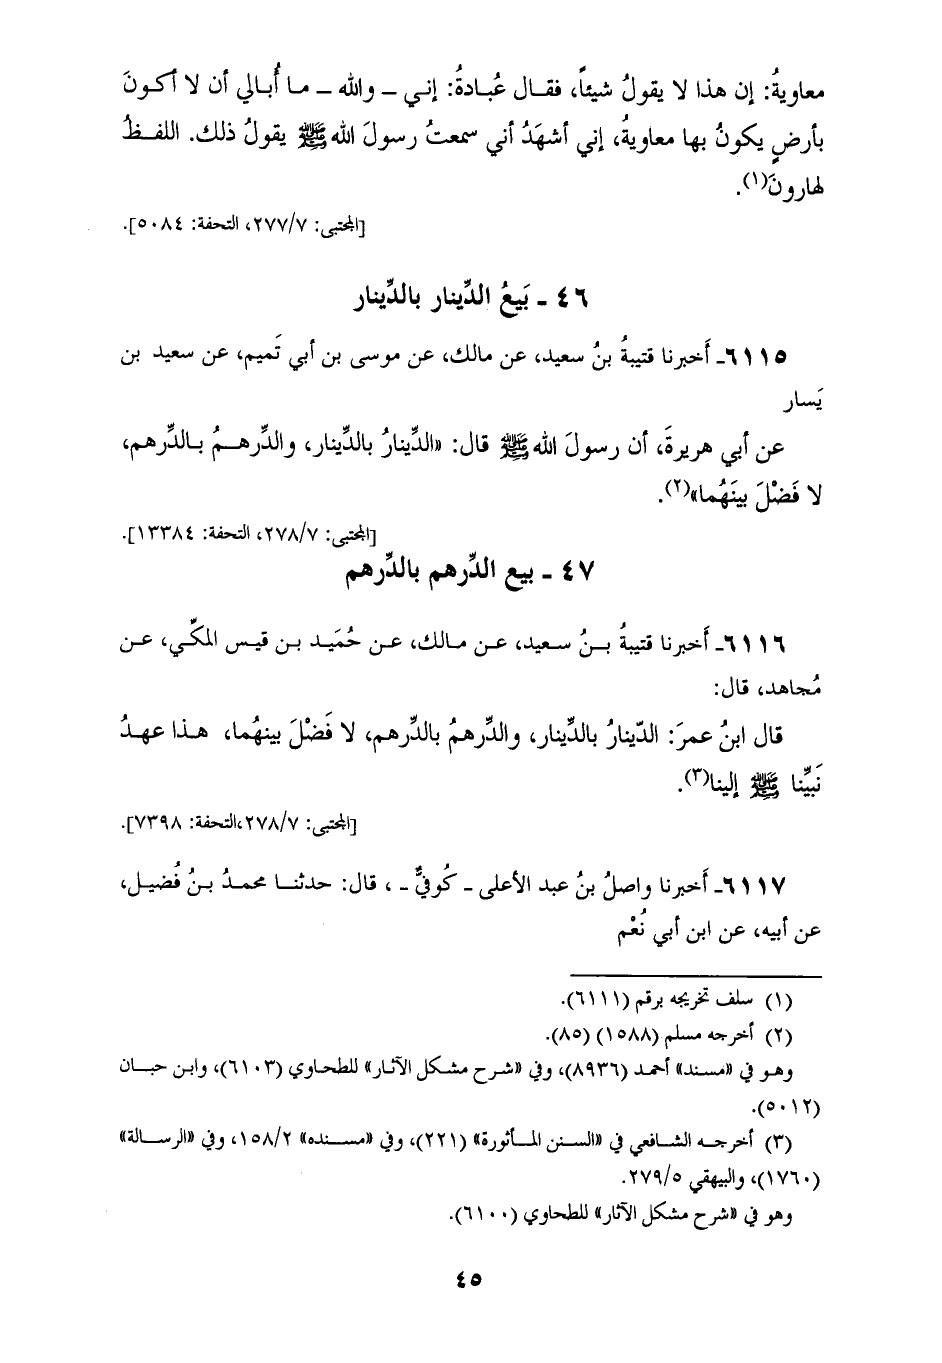 معاويةُ: إن هذا لا يقولُ شيئاً، فقـال عُبادةُ: إني ـ والله ـ مـا أُبـالي أن لا أكـونَ
بأرضٍ يكونُ بها معاويةُ، إني أشهَدُ أني سمعتُ رسولَ الله ﷺ يقولُ ذلك. اللفـظُ
لهارونَ(١).
[المجتبى: ٢٧٧/٧، التحفة: ٥٠٨٤].
٤٦ ـ بَيعُ الدِّينار بالدِّينار
٦١١٥ـ أَخبرنا قتيبةُ بنُ سعيد، عن مالك، عن موسى بن أبي تَميم، عن سعيد بن
يَسار
عن أبي هريرةَ، أن رسولَ الله ﷺ قال: «الدِّينارُ بالدِّينار، والدِّرهـمُ بـالدِّرهم،
لا فَضْلَ بينَهُما»(٢).
[المجتبى: ٢٧٨/٧، التحفة: ١٣٣٨٤].
٤٧ ـ بيع الدِّرهم بالدِّرهم
٦١١٦ـ أَخبرنا قتيبةُ بـنُ سـعيد، عـن مـالك، عـن حُمَيـد بـن قيـس المكِّـي، عـن
مُجاهد، قال:
قال ابنُ عمرَ: الدّينارُ بالدِّينار، والدِّرهمُ بالدِّرهم، لا فَضْلَ بينهُما، هـذا عهـدُ
نَبيِّنا ﷺ إلينا(٣).
[المجتبى: ٢٧٨/٧،التحفة: ٧٣٩٨].
٦١١٧ـ أَخبرنا واصلُ بنُ عبد الأعلى ـ كُوفيٌّ ـ ، قال: حدثنـا محمـدُ بـنُ فُضيـل،
عن أبيه، عن ابن أبي نُعْم
(١) سلف تخريجه برقم (٦١١١).
(٢) أخرجه مسلم (١٥٨٨) (٨٥).
وهـو في «مسند» أحمد (٨٩٣٦)، وفي «شرح مشكل الآثـار» للطحـاوي (٦١٠٣)، وابـن حبـان
(٥٠١٢).
(٣) أخرجـه الشـافعي في «السـنن المـأثورة» (٢٢١)، وفي «مسـنده» ١٥٨/٢، وفي «الرسـالة»
(١٧٦٠)، والبيهقي ٢٧٩/٥.
وهو في «شرح مشكل الآثار» للطحاوي (٦١٠٠).
٤٥